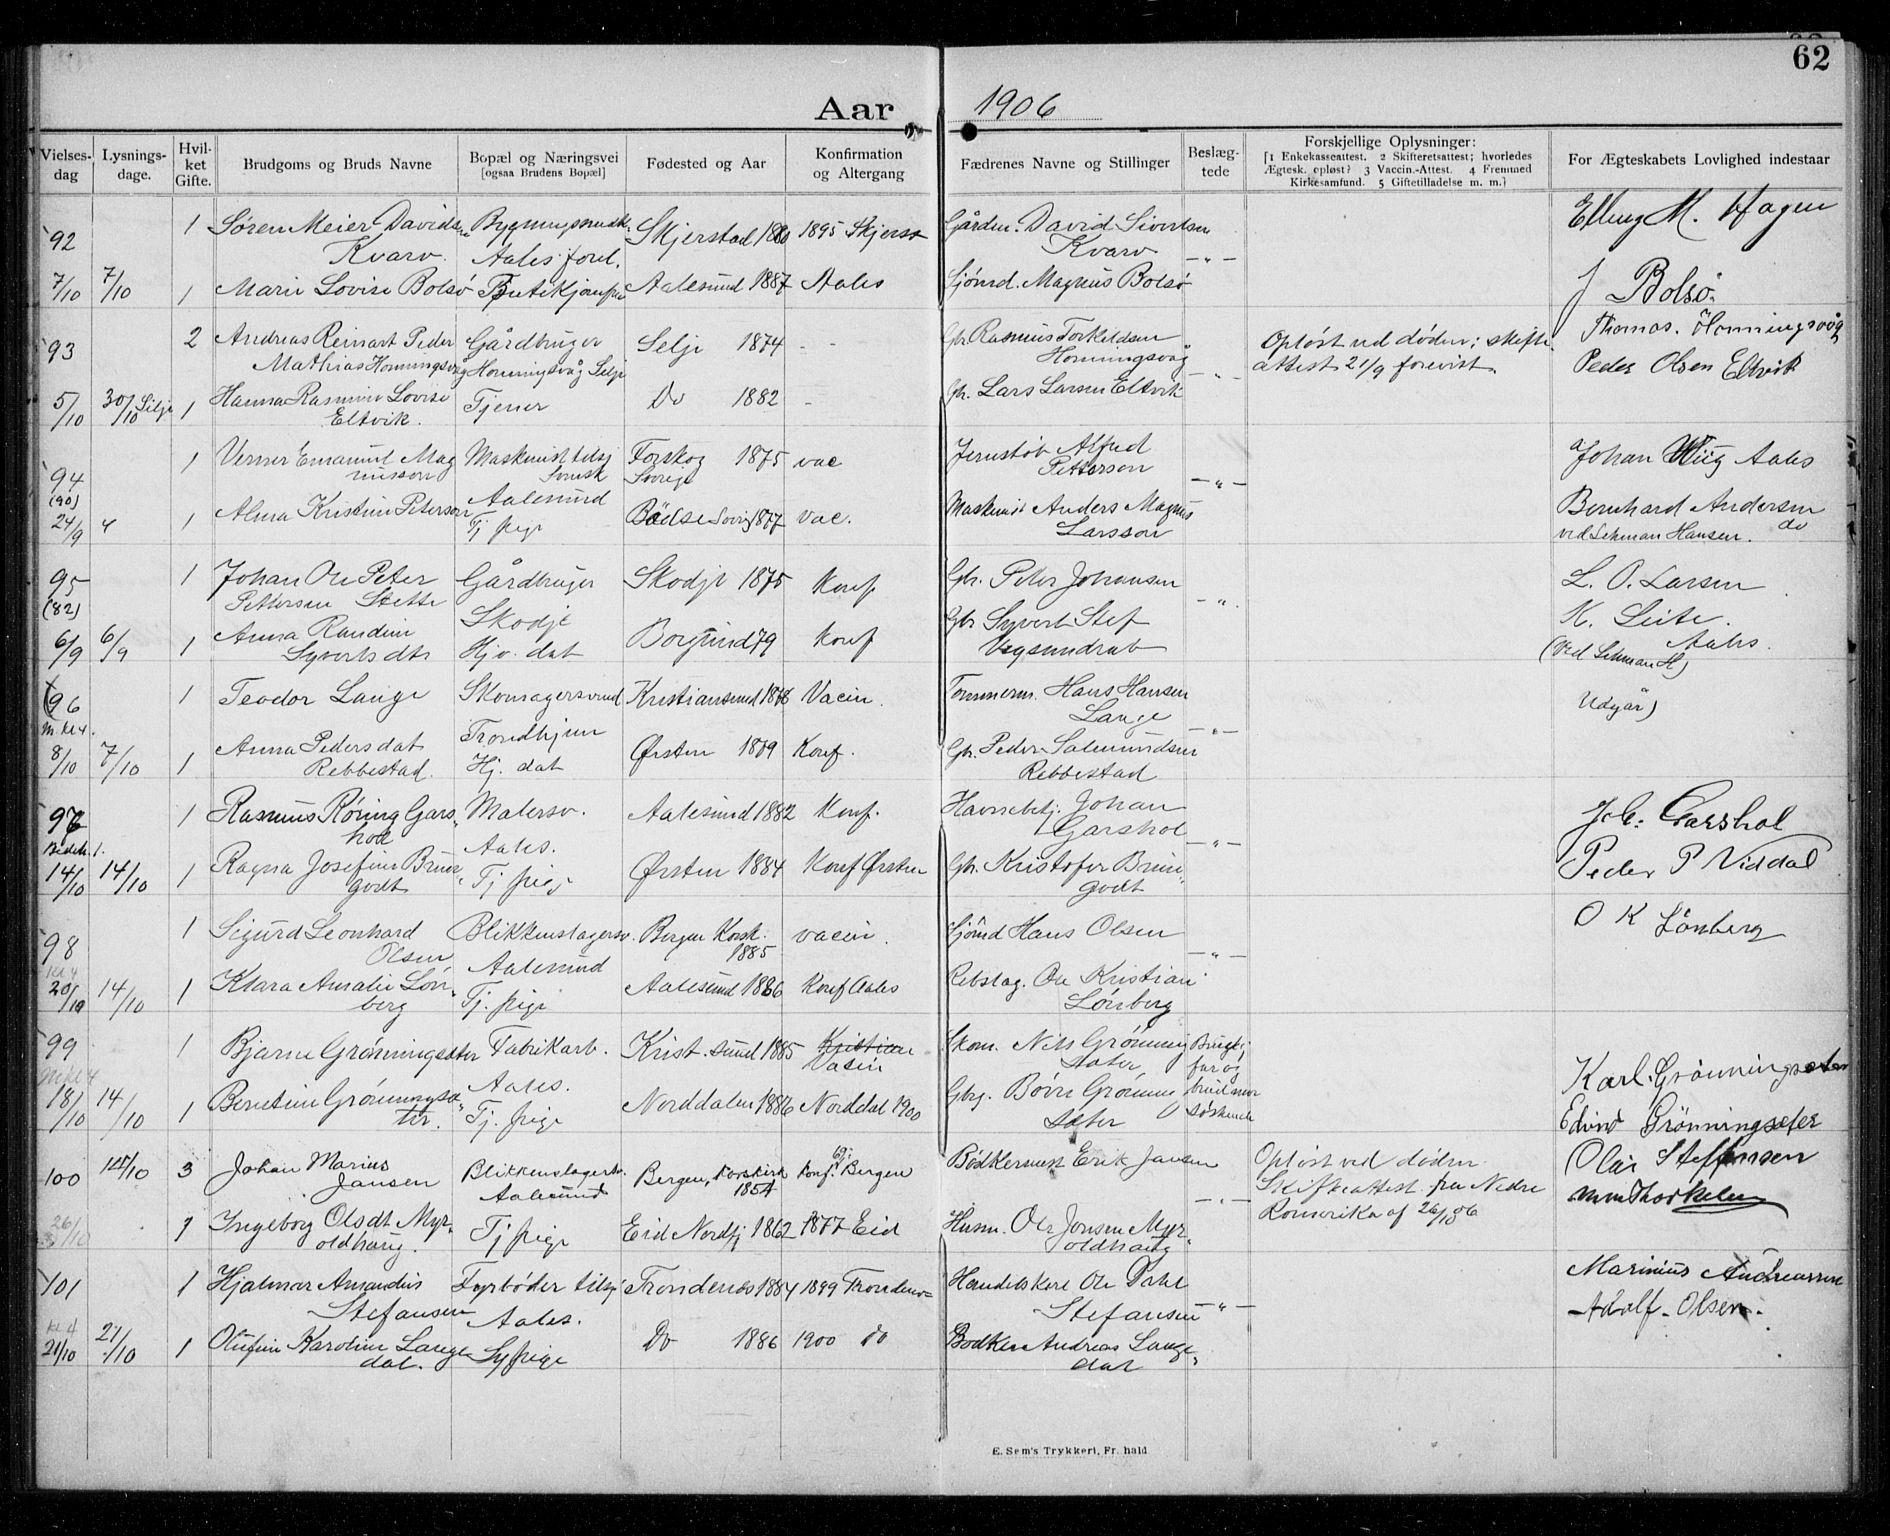 62
Aar 1906
Vielses-dag
Lysnings-dage.
Hvil-ket Gifte.
Brudgoms og Bruds Navne
Bopæl og Næringsvei
[ogsaa Brudens Bopæl]
Fødested og Aar
Konfirmation og Altergang
Fædrenes Navne og Stillinger
Beslæg-tede
Forskjellige Oplysninger:
[1 Enkekasseattest. 2 Skifteretsattest; hvorledes
Ægtesk. opløst? 3 Vaccin.-Attest. 4 Fremmed
Kirkesamfund. 5 Giftetilladelse m. m.]
For Ægteskabets Lovlighed indestaar
92 1 Søren Meier Davidsen Skjerstad 1880 1895 Skjerst Gården. David Sivertsen Elling M. Hagen
Kvarv. Aales forel. Kvarv -"-
7/10 7/10 1 Marie Lovise Bolsø Aalesund 1887 Aales Sjömd. Magnus Bolsø J Bolsø.
93 2 Andreas Reinart Peder Gårdbruger Selje 1874 - - Gbr. Rasmus Torkildsen Opløst ved døden; skifte- Thomas. Honningsvåg
Mathias Honningsvåg Honningsvåg Selje Honningsvåg -"- attest 21/9 forevist. Peder Olsen Eltvik
5/10 30/10 Selje 1 Hanna Rasmine Lovise Tjener Do 1882 - Gbr. Lars Larsen Eltvik
Eltvik.
94 1 Verner Emanuel Mag Maskinist tilsj Forskog 1875 vac Jernstöb Alfred Johan Wiig Aales
nusson Svensk Sverige Petterson -"-
(90) Aalesund
24/9 4 1 Alma Kristine Peterson Tj pige Bödse Sverig 1877 vac. Maskinist Anders Magnus Bernhard Andersen do
Larsson ved Lehman Hansen.
95 1 Johan Ole Peter Gårdbruger Skodje 1875 Konf Gbr. Peter Johansen L. O. Larsen
(82) Pettersen Stette Skodje -"- K. Leite.
6/9 6/9 1 Anna Randine Hjv. dat Borgund 79 Konf Gbr Syvert Stef Aales.
Syvertsdtr Vegsundrab (Ved Lehman H)
(96 1 Teodor Lange Skomagersvend Kristiansund 1878 Vacin. Tømmerm. Hans Hansen Udgår)
m. kl 4. Trondhjem Lange -"-
8/10 7/10 1 Anna Pedersdat Hj. dat Ørsten 1879 Konf. Gbr. Peder Salemundsen
Rebbestad. Rebbestad
97 1 Rasmus Røring Gars- Malersv. Aalesund 1882 Konf. Havnebetj. Johan Joh: Garshol
hol Aales. Garshol -"-
Bedeh. 1.
14/10 14/10 1 Ragna Josefine Brune- Tj pige Ørsten 1884 Konf Ørsten Gbr. Kristofer Brune- Peder P Viddal
godt godt
98 1 Sigurd Leonhard Blikkenslagersv. Bergen Korsk. vacin. Sjömd Hans Olsen O K Lönberg
Olsen Aalesund 1885 -"-
kl 4
20/10 14/10 1 Klara Amalie Løn- Tj. pige Aalesund 1886 Konf Aales Rebslag. Ole Kristian
berg Lönberg
99 1 Bjarne Grönningseter Fabrikarb. Krist. sund 1885 Kristian Skom. Nils Grönning Brudg.
Aales. Vacin sæter far og Karl. Grönningsæter
18/10 14/10 1 Berntine Grönningsæ- Tj. pige Norddalen 1886 Norddal 1900 Gbrg. Børre Grönning brudsmor
ter. sæter søskende Edvind Grönningsæter
100 14/10 3 Johan Marius Blikkenslagersv. Bergen, Korskirk Konf. Bergen Bødkermest Erik Jansen Opløst ved døden Olai Steffensen
Jansen Aalesund 1854 -"- Skifteattest fra Nedre
26/10 1 Ingeborg Olsdt Myr- Tj pige Eid Nordfj 1862 1877 Eid Husm. Ole Jonsen Myr- Romerika af 26/9 06
oldhaug. oldhaug
101 1 Hjalmar Amandus Fyrbøder tilsj Trondenes 1884 1899 Trondenes Handelskarl Ole Dahl Marinius Andreassen
Stefansen Aales. Stefansen -"- Adolf Olsen.
kl 4
21/10 21/10 1 Olufine Karoline Lange- Sypige Do 1886 1900 do Bødker Andreas Lange-
dal. dal
E. Sem's Trykkeri, Fr. hald